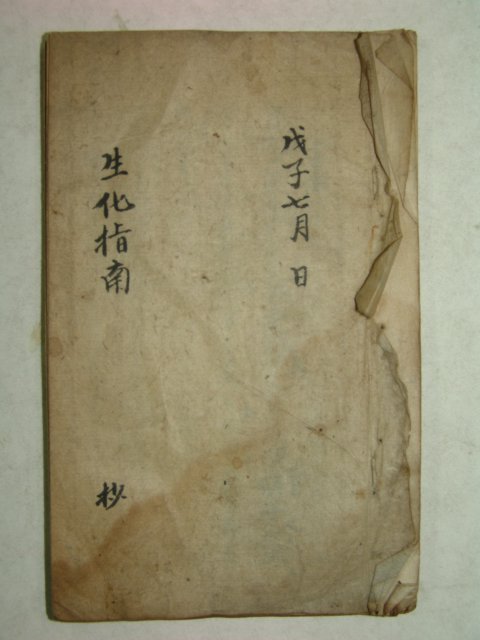 戊子七月 日
生化指南 抄